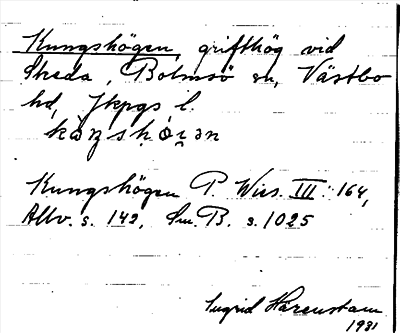 Kungshögen, grifthög vid
Skeda, Bolmsö sn, Västbo
hd, Jkpgs l.
Kungshögen P. Wies. III: 164,
Allv. s. 142, Sm. B. s. 1025
Ingrid Harenstam
1931